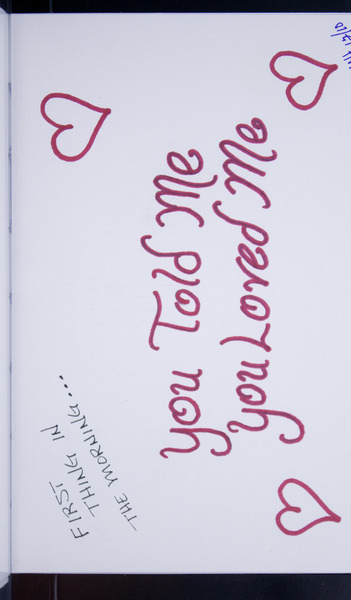 you Told me
you Loved me
FIRST
THING IN
THE MORNING....